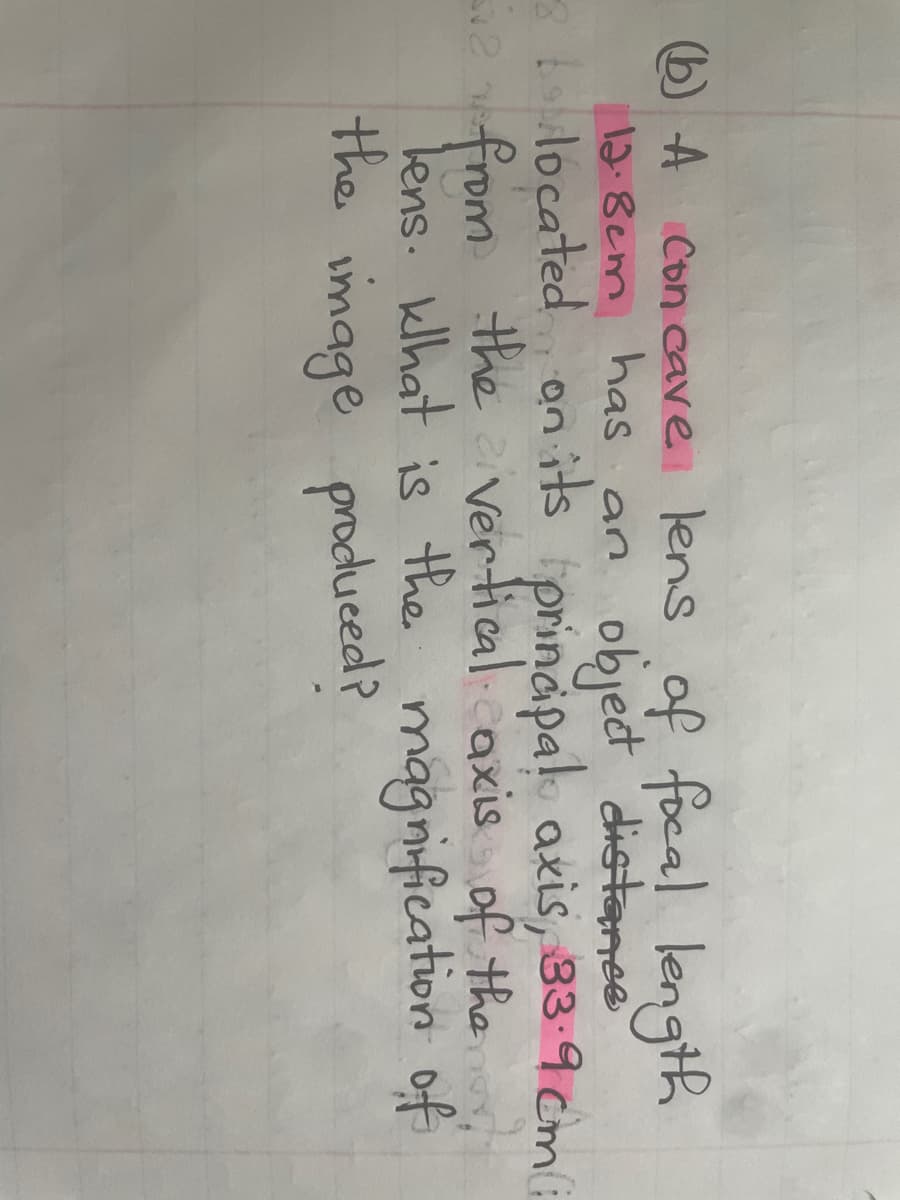 (b) A concave lens of focal length
12.8cm has an object distance
located on its principal axis, 33.9cm
from the vertical axis of the
lens. What is the magnification of
the image produced?